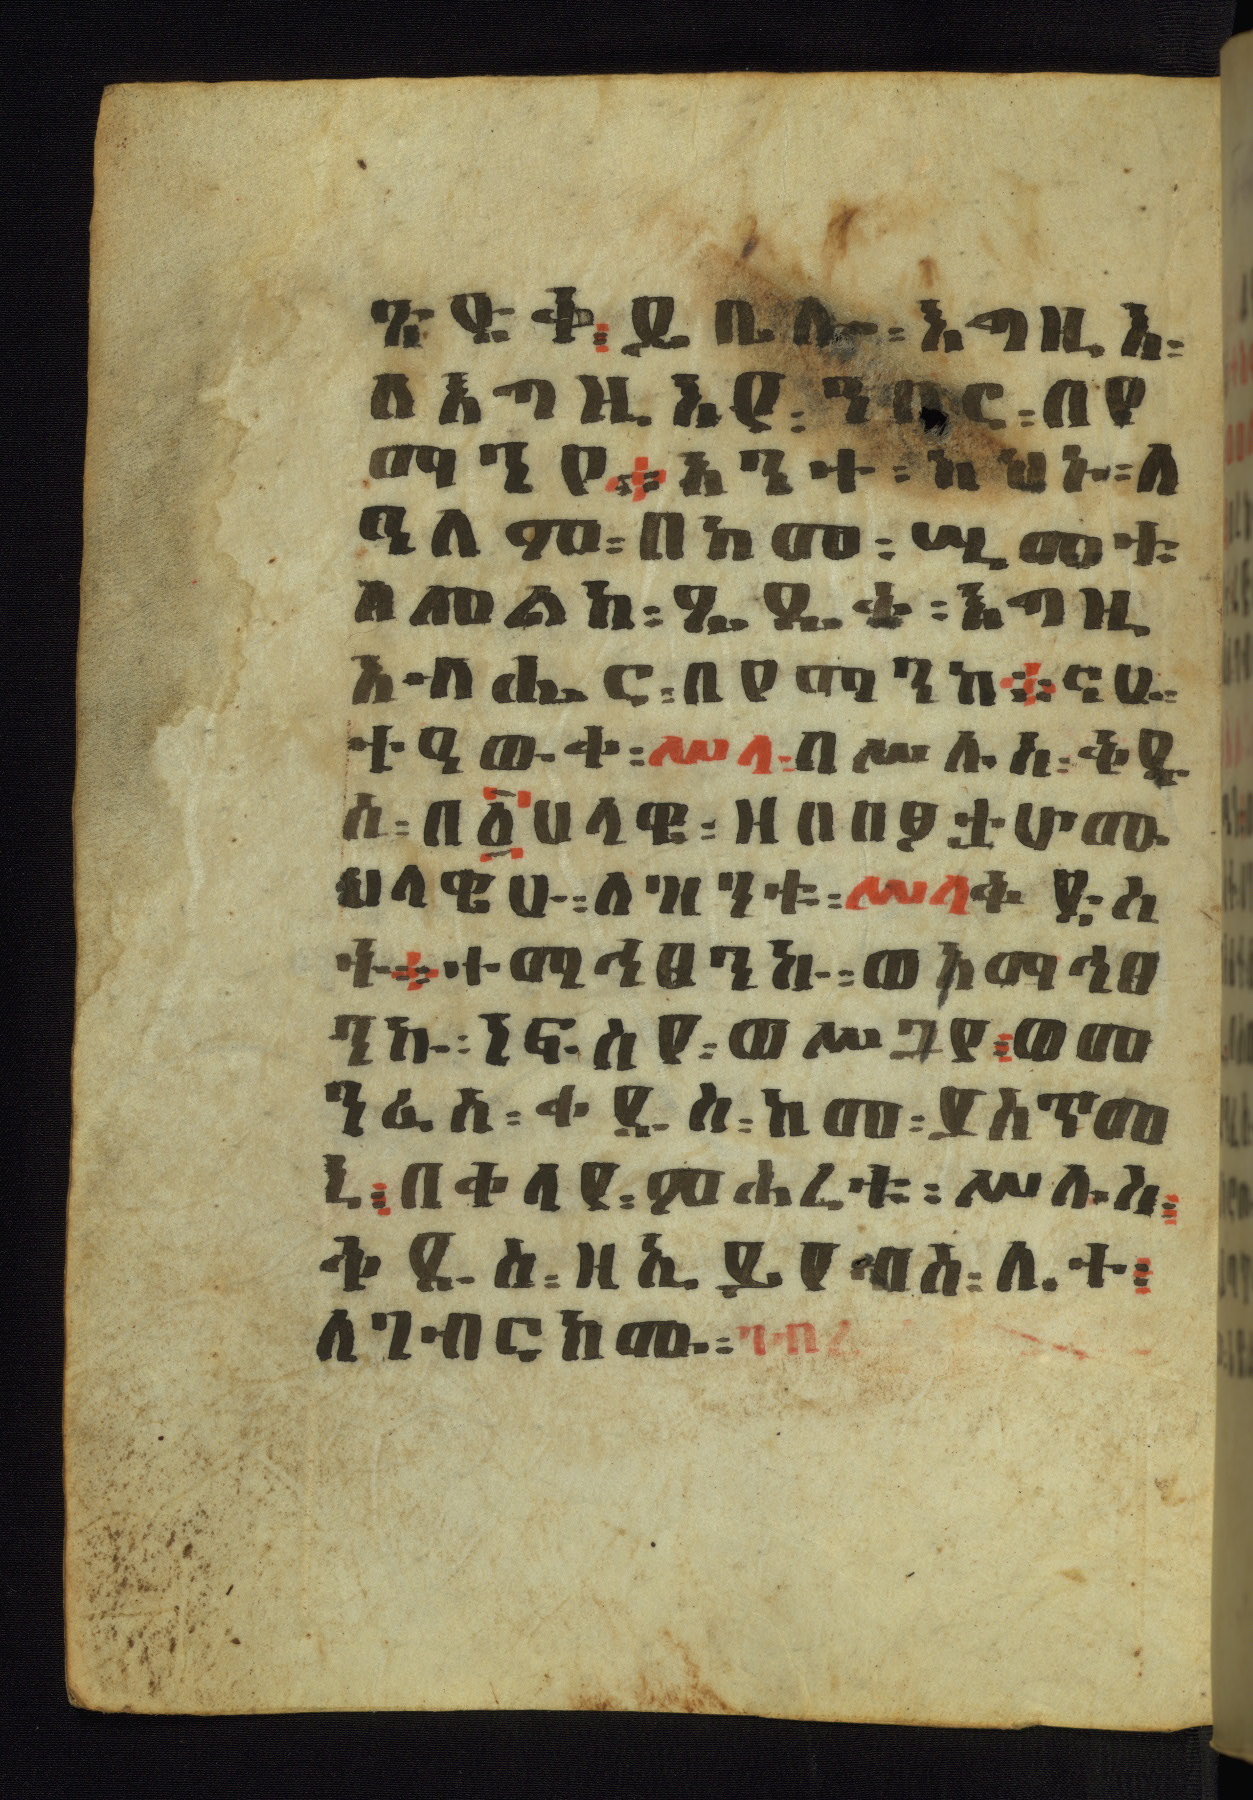 ጽድቅ፤ ይቤሎ፡ እግዚእ፡
ለእግዚእየ፡ ንበር፡ በየ
ማንየ፨ አንተ፡ ካህኑ፡ ለ
ዓለም፡ በከመ፡ ሢመቱ
ለመልከ፡ ጼዴቅ፡ እግዚ
አብሔር፡ በየማንከ፨ ፍሁ
ሥላ፡ በሥሉስ፡ ቅዱ
ስ፡ በ፩ህላዌ፡ ዘበበፆታሆሙ
ህላዌሁ፡ ለዝንቱ፡ ሥላቅዱስ
ት፨ ተማኅፀንኩ፡ ወአማኅፀ
ንኩ፡ ነፍስየ፡ ወሥጋየ፤ ወመ
ንፈስ፡ ቀዱስ፡ ከመ፡ ያስጥመ
ኒ፤ በቀላየ፡ ምሕረቱ፡ ሥሉስ፤
ቅዱስ፡ ዘኢይየብስ፡ ሌተ፤
ለገብርከሙ፡ ገብረ